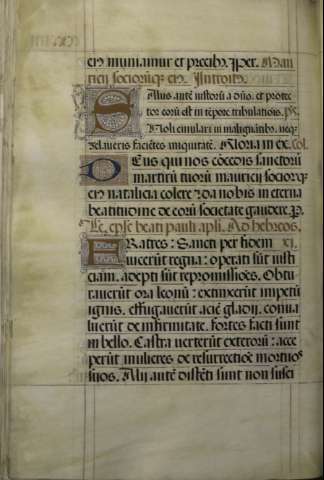 en muniamur et precib9. per. Mau
ricij socioruq3 ei9. Introit9.
Salus autē iustorū a dño. et protec
tor eorū est in tēpore tribulationis. ps.
Noli emulari in malignātib9. neq3
zelaueris faciētes iniquitatē. Gloria in ex. Col.
Deus qui nos cōcedis sanctorū
martirū tuorū mauricij sociorūq3
ei9 natalicia colere: da nobis in eterna
beatitudine de eorū societate gaudere. p.
Lc. epłe beati pauli apłi. Ad hebreos.
Fratres: Sancti per fidem xi.
uicerūt regna: operati sūt iusti
ciam. adepti sūt repromissiões. Obtu
rauerūt ora leonū: extinxerūt impetū
ignis. effugauerūt aciē gladij. conua
luerūt de infirmitate. fortes facti sunt
in bello. Castra uerterūt exterorū: acce
perūt mulieres de resurrectiōe mortuos
suos. Alij autē distēti sunt non susci